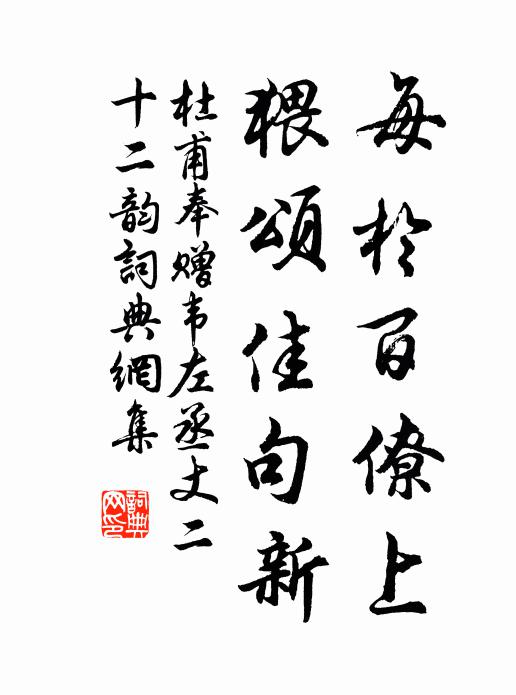 每於百僚上
猥頌佳句新
杜甫奉赠韦左丞丈二
十二韵詞典網集
詞典
网印